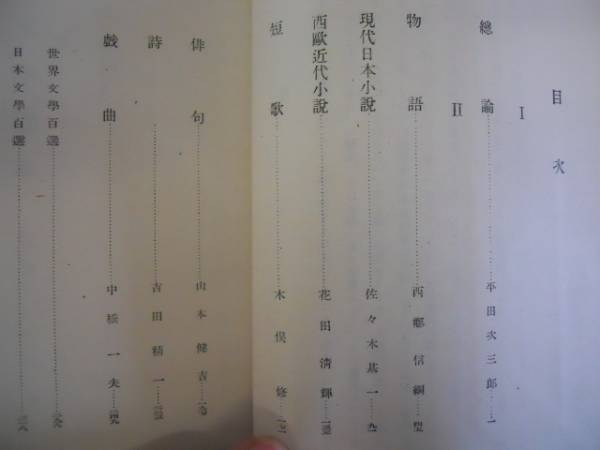 目次
I
總論……平田次三郎……一
II
物語……西鄕信綱……
現代日本小說……佐々木基一……
西歐近代小說……花田淸輝……
短歌……木俣修……
俳句……山本健吉……
詩……吉田精一……
戯曲……中橋一夫……
世界文學百選……
日本文學百選……